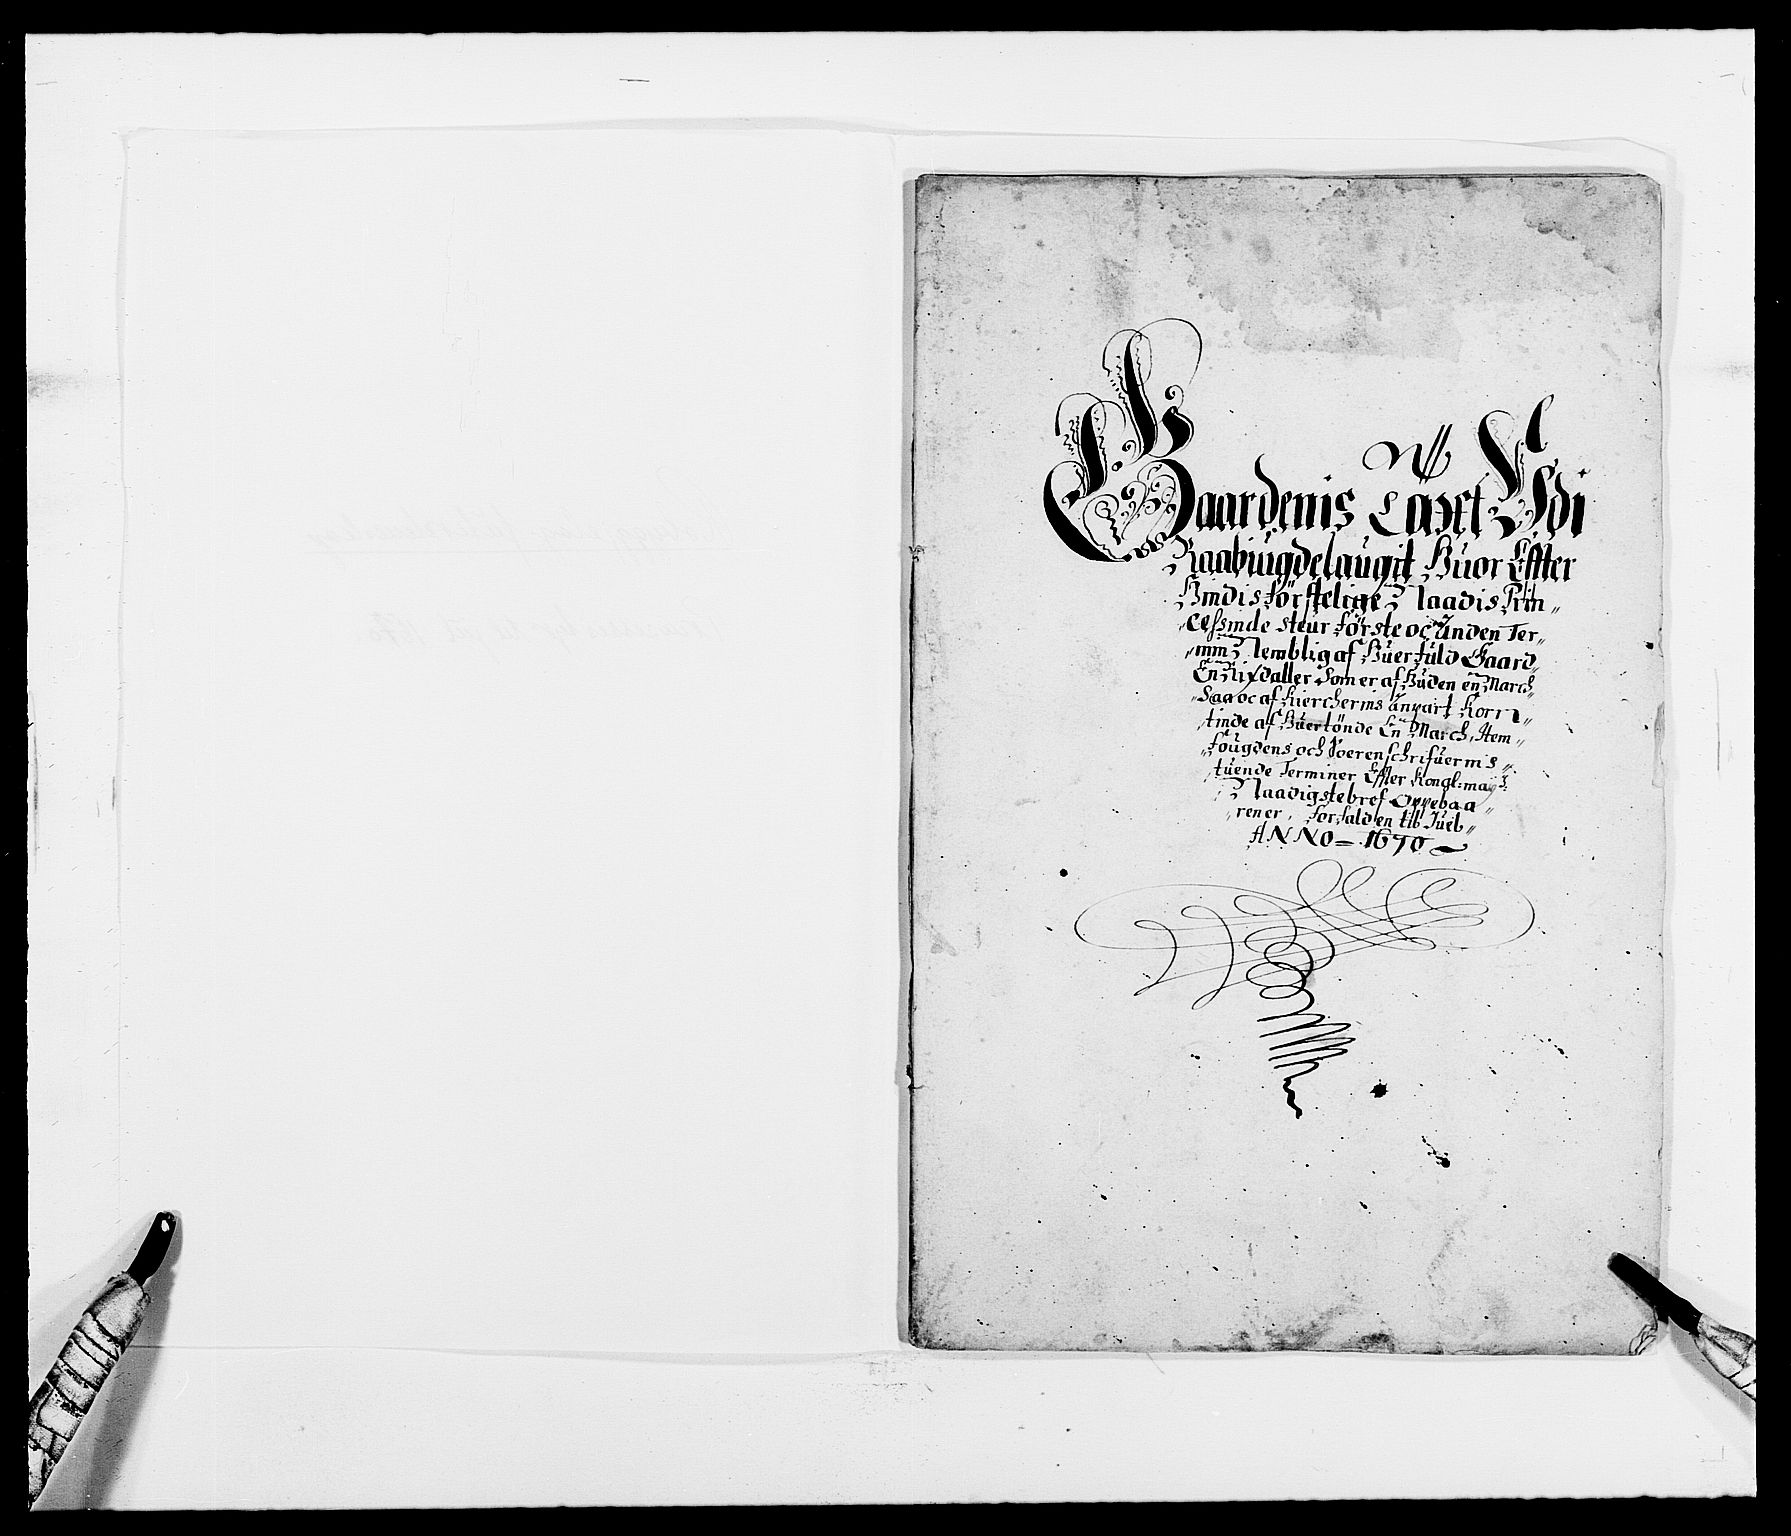 Gaardenis Taxt Udi
Raabiugdelaugit Huor Effter
Hindis förstelige Naadis Prin„
„cessinde steur förste oc anden Ter„
„min Nemblig af Huer fuld Gaard„
En Rixdaller Som er af Huden en March„
„Saa oc af Kierchernis anpart Korn„
„tinde af Huer tönde En March, Item„
„fougdens och Soerenschrifuernis„
„tuende Terminer Effter Kongl: mayᵗˢ:
Naadigste bref Oppebaa„
„rener, forfalden til Juel„
ANNO = 1670